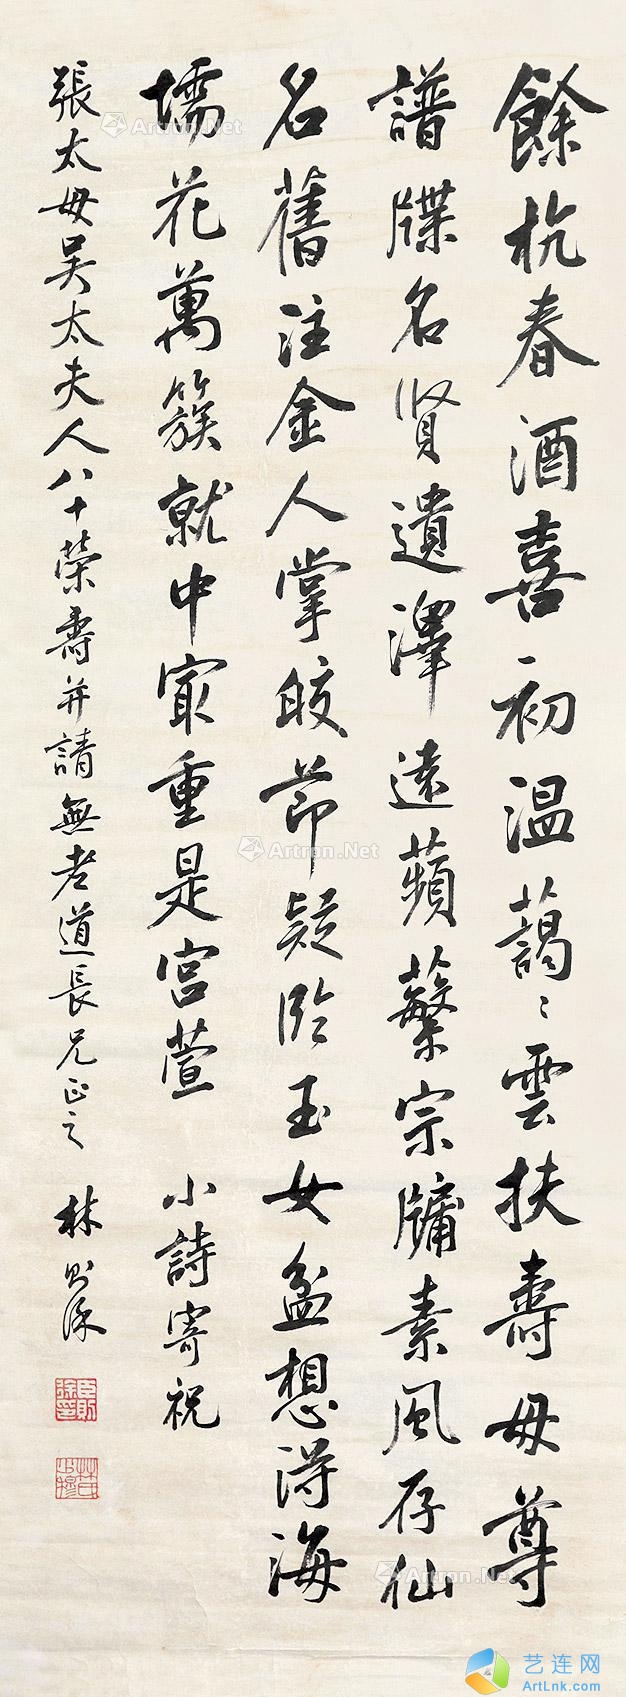 餘杭春酒喜初温藹〻雲扶壽母尊
譜牒名賢遺澤遠蘋蘩宗牖素風存仙
名舊注金人掌皎節疑臨玉女盆想得海
壖花萬簇就中冣重是宮萱 小詩寄祝
張太母吳太夫人八十榮壽并請無老道長兄正之 林則徐
臣則徐印
Artron.Net
Artron.Net
Artron.Net
Artron.Net
艺连网
ArtLnk.com